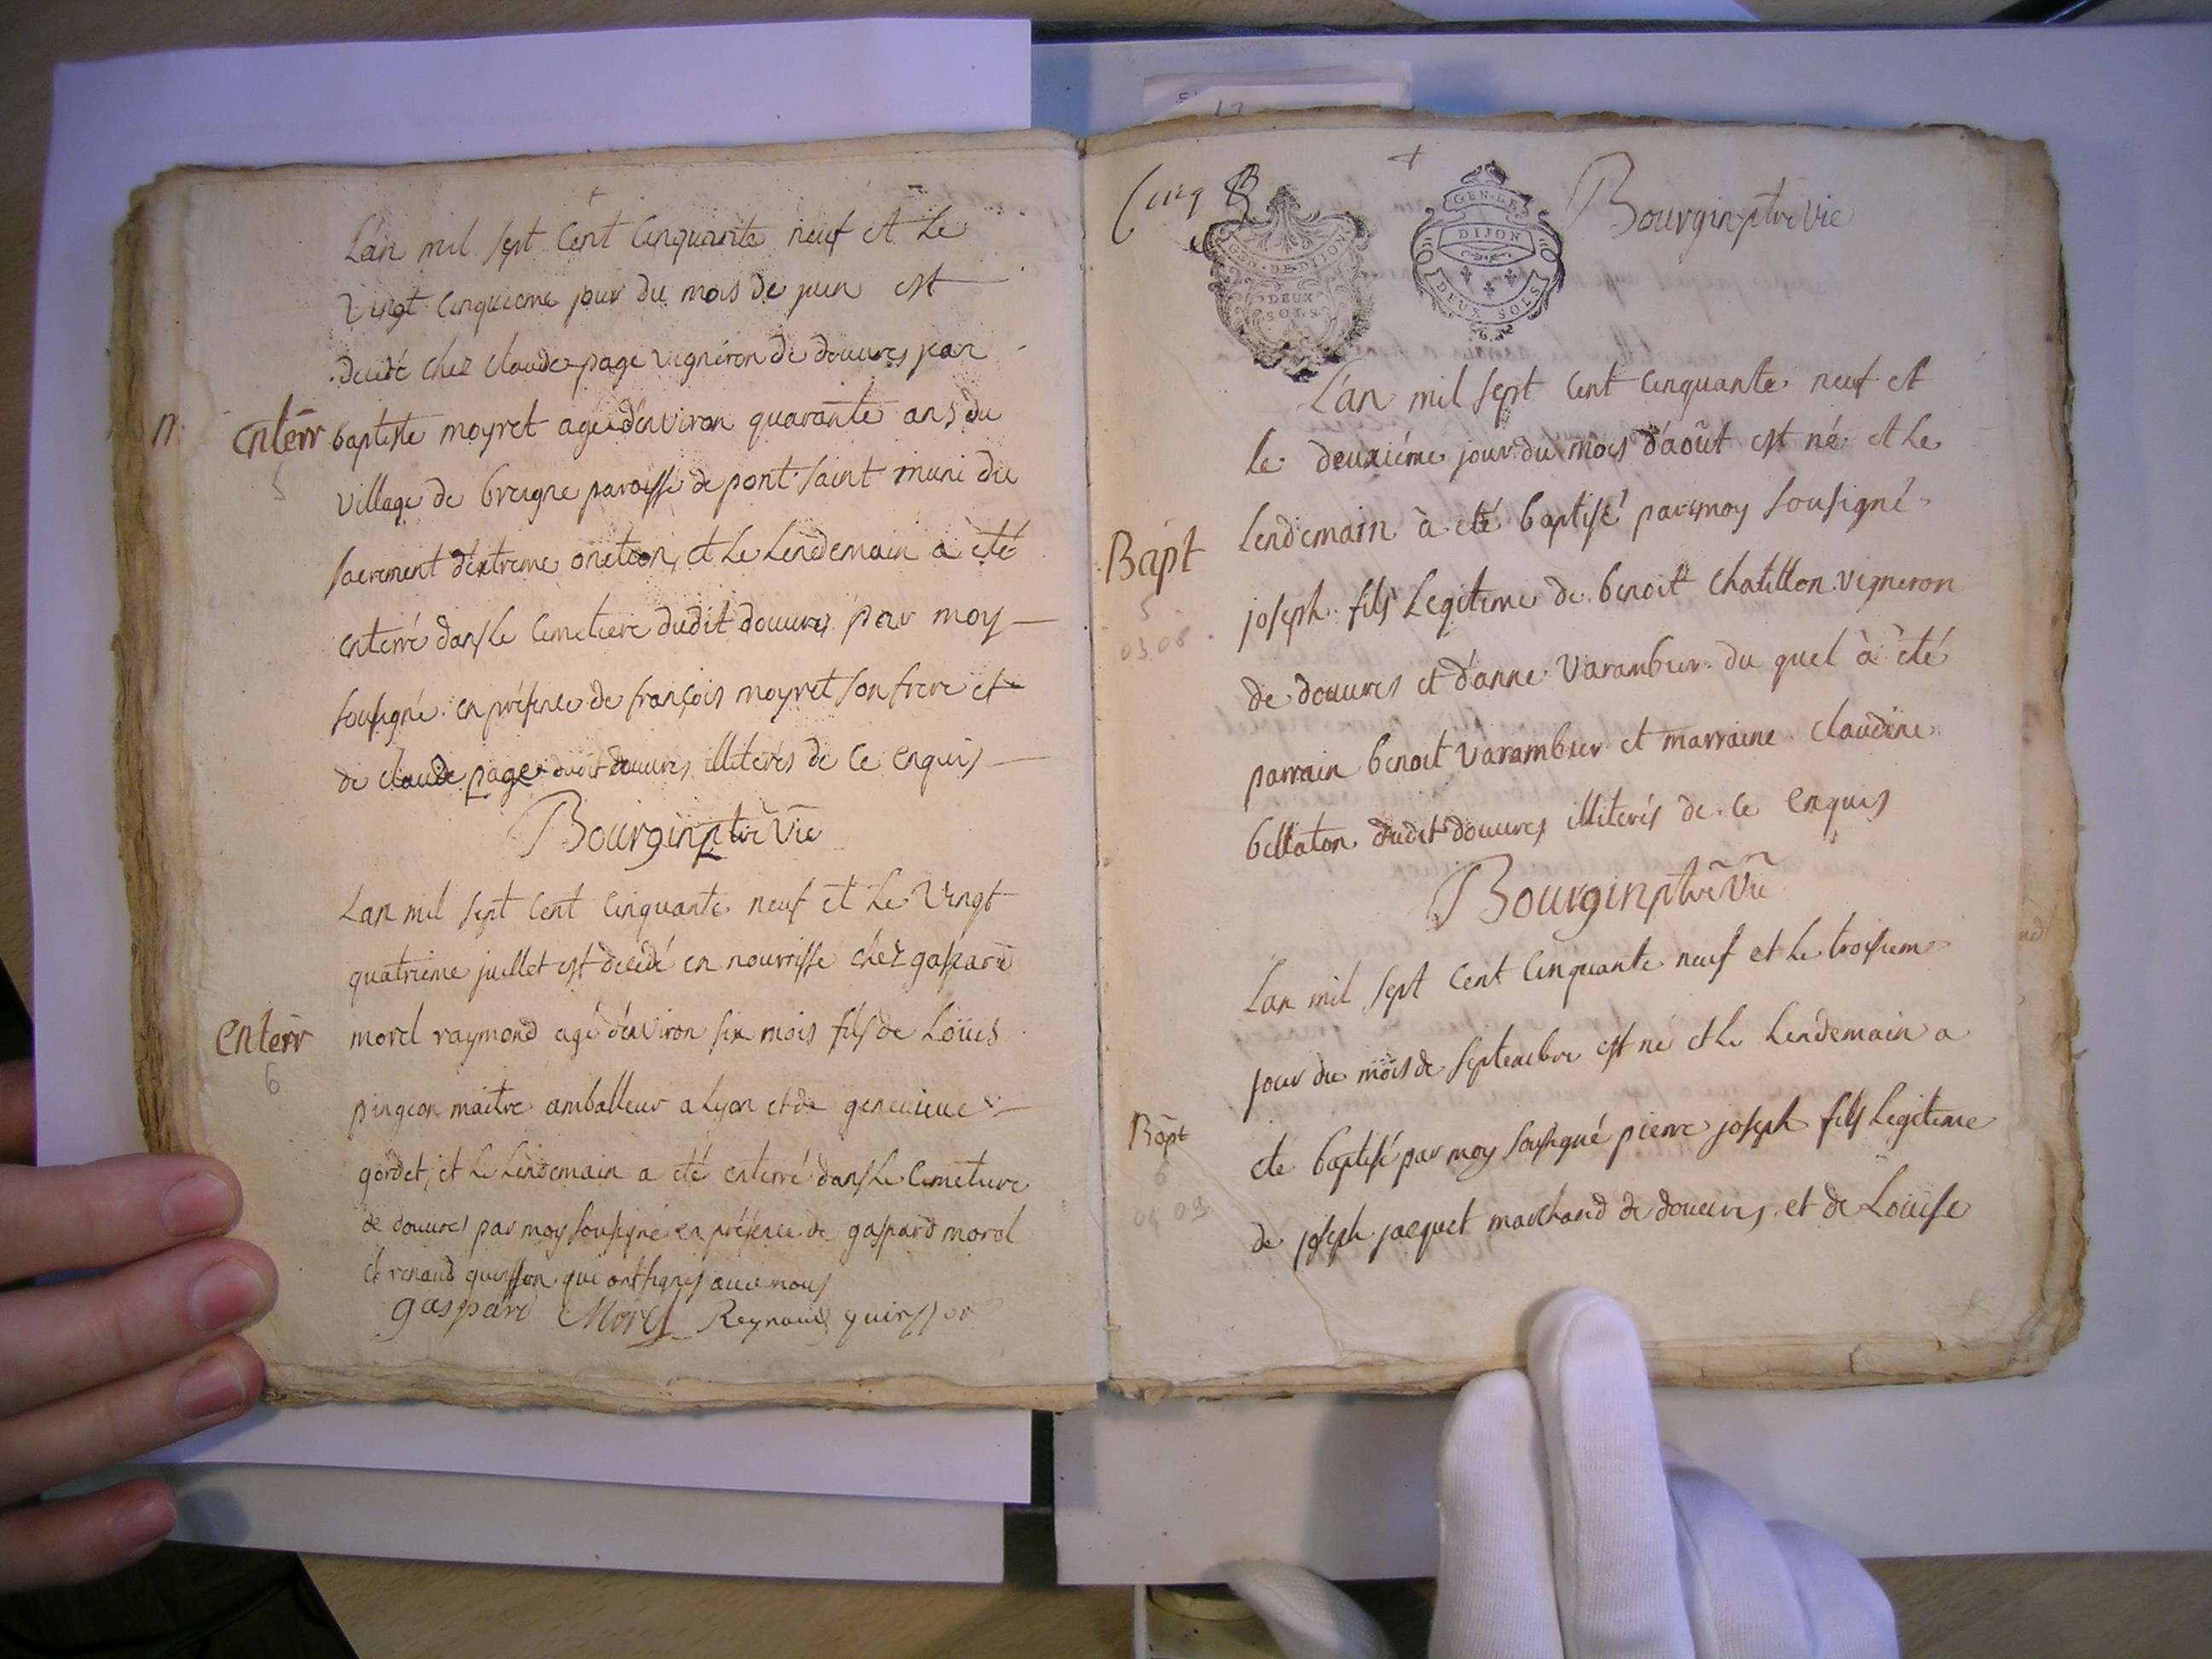 L'an mil sept cent cinquante neuf et le
vingt cinquieme jour du mois de juin est
decedé chez claude page vigneron de douvres jean
n.
enterr
baptiste moyret agé d'environ quarante ans du
5
village de breigne paroisse de pont saint muni du
sacrement d'extreme onction, et le lendemain a été
enterré dans le cimetiere dudit douvres par moy
sousigné en présence de françois moyret son frere et
de claude page dudit douvres illiterés de ce enquis
Bourgin ptre vic
Lan mil sept cent cinquante neuf et le vingt
quatrieme juillet est decedé en nourrisse chez gaspard
enterr
morel raymond agé d'environ six mois fils de Loüis
6
pingeon maitre amballeur a Lyon et de genevieve
gordet, et le lendemain a été enterré dans le cimetiere
de douvres par moy sousigné en présence de gaspard morel
et renaud quisson qui ont signés avec nous
gaspard Morel Reynaud quirsson
Cinq
Bourgin ptre vic
GEN. DE DIJON
DEUX SOLS
GEN. DE
DIJON
DEUX SOLS
L'an mil sept cent cinquante neuf et
le deuxiéme jour du mois d'août est né et le
lendemain à eté baptisé par moy sousigné
Bapt
5
03 08
joseph fils legitime de benoit chatillon vigneron
de douvres et d'anne varambier du quel à èté
parrain benoit varambier et marraine claudine
bellaton dudit douvres illiterés de ce enquis
Bourgin ptre vic
Lan mil sept cent cinquante neuf et le troisieme
jour du mois de septembre est né et le lendemain a
Bapt
6
04 09
ete baptisé par moy sousigné pierre joseph fils legitime
de joseph jacquet marchand de douvres et de Loüise